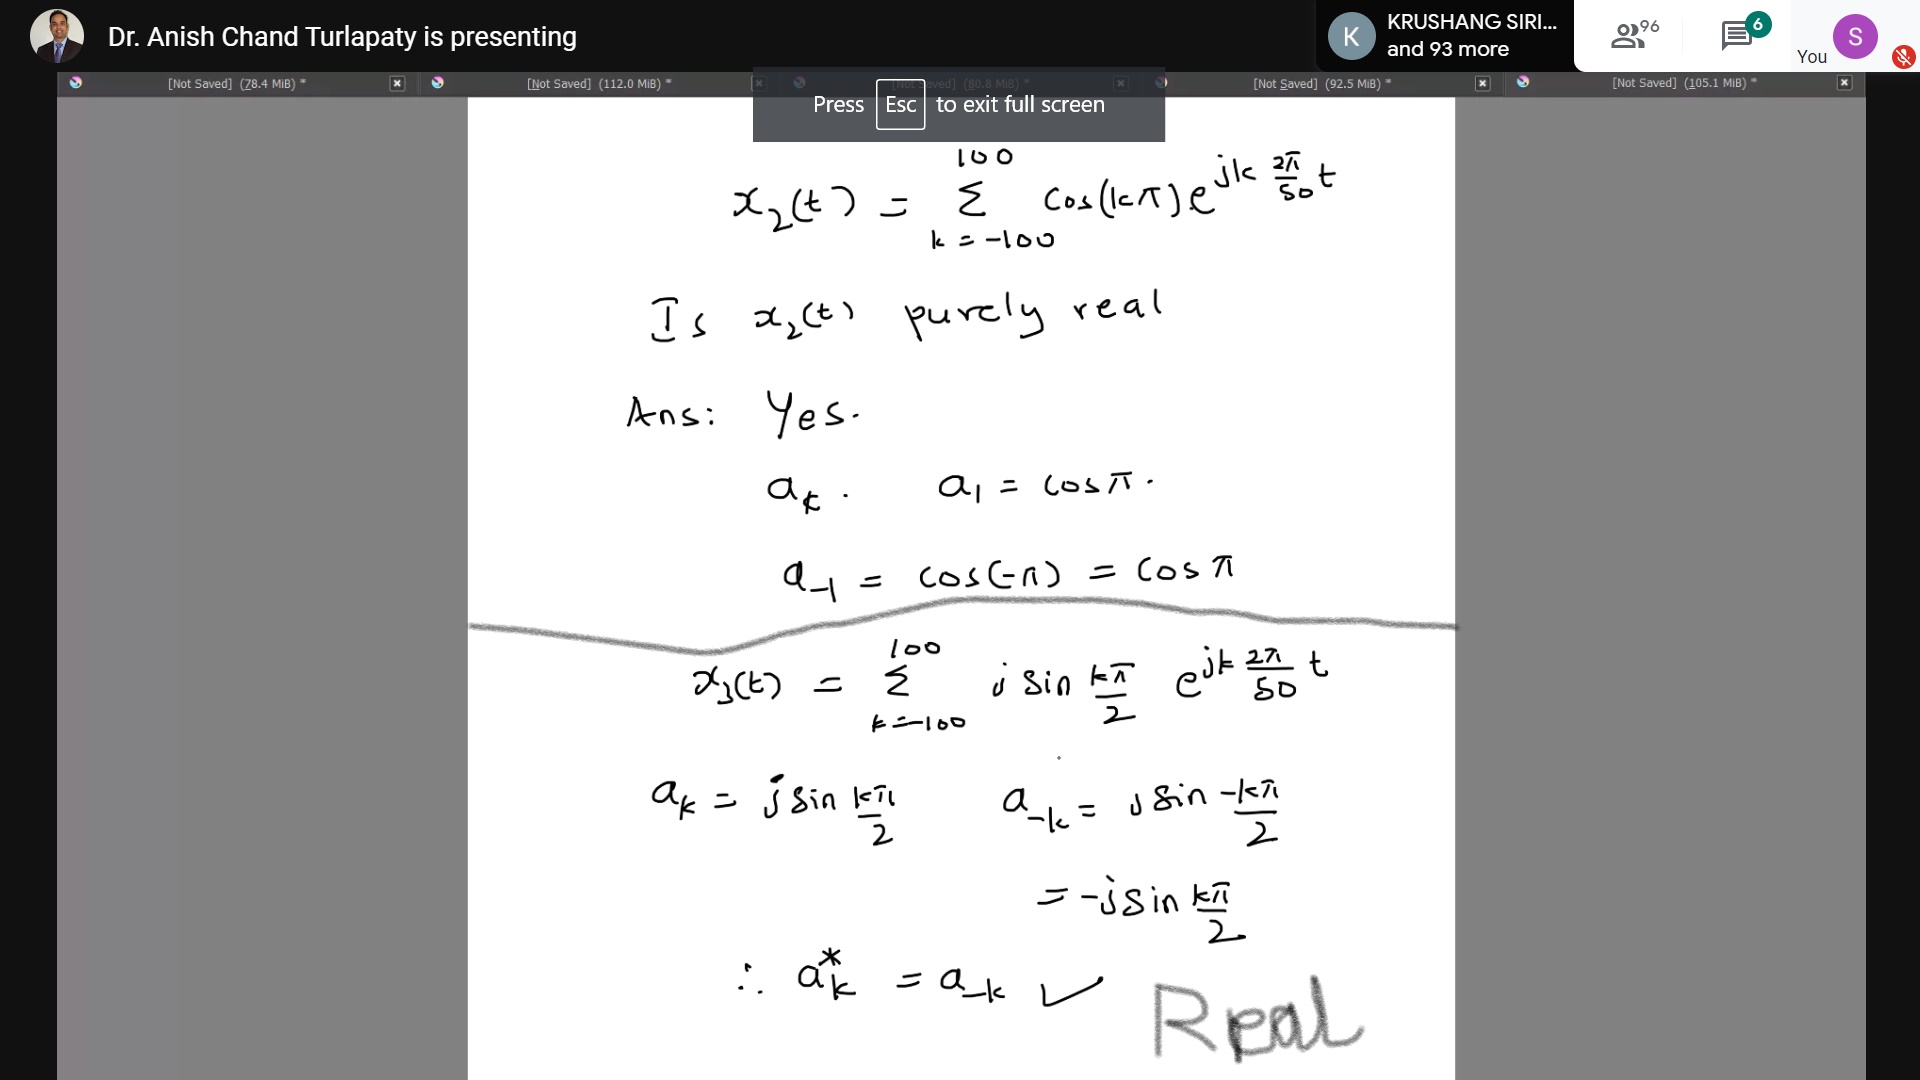 Dr. Anish Chand Turlapaty is presenting
K KRUSHANG SIRI...
and 93 more
96
6
You
S
[Not Saved] (78.4 MiB) *
[Not Saved] (112.0 MiB) *
[Not Saved] (80.8 MiB) *
[Not Saved] (92.5 MiB) *
[Not Saved] (105.1 MiB) *
Press Esc to exit full screen
x₂(t) = Σ_{k=-100}^{100} cos(kπ) e^{jk 2π/50 t}
Is x₂(t) purely real
Ans: Yes.
aₖ. a₁ = cosπ.
a₋₁ = cos(-π) = cos π
x₃(t) = Σ_{k=-100}^{100} j sin kπ/2 e^{jk 2π/50 t}
aₖ = j sin kπ/2 a₋ₖ = j sin -kπ/2
= -j sin kπ/2
∴ aₖ* = a₋ₖ ✓ Real